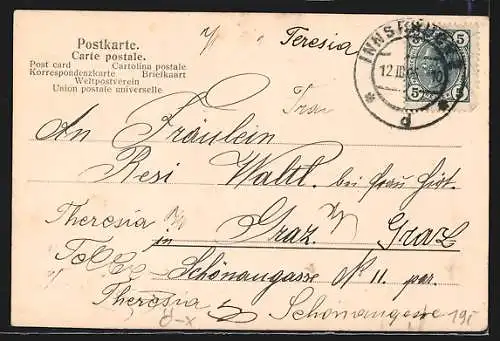 Postkarte.
Carte postale.
Post card Cartolina postale
Korrespondenzkarte Brievkaart
Weltpostverein
Union postale universelle
Teresia
INNSBRUCK
12 III
d
5 5
5 5
An Fräulein
Resi Waltl. bei Frau
Theresia Graz. Graz
in
Schönaugasse No 11. par.
Theresia Schönaugasse